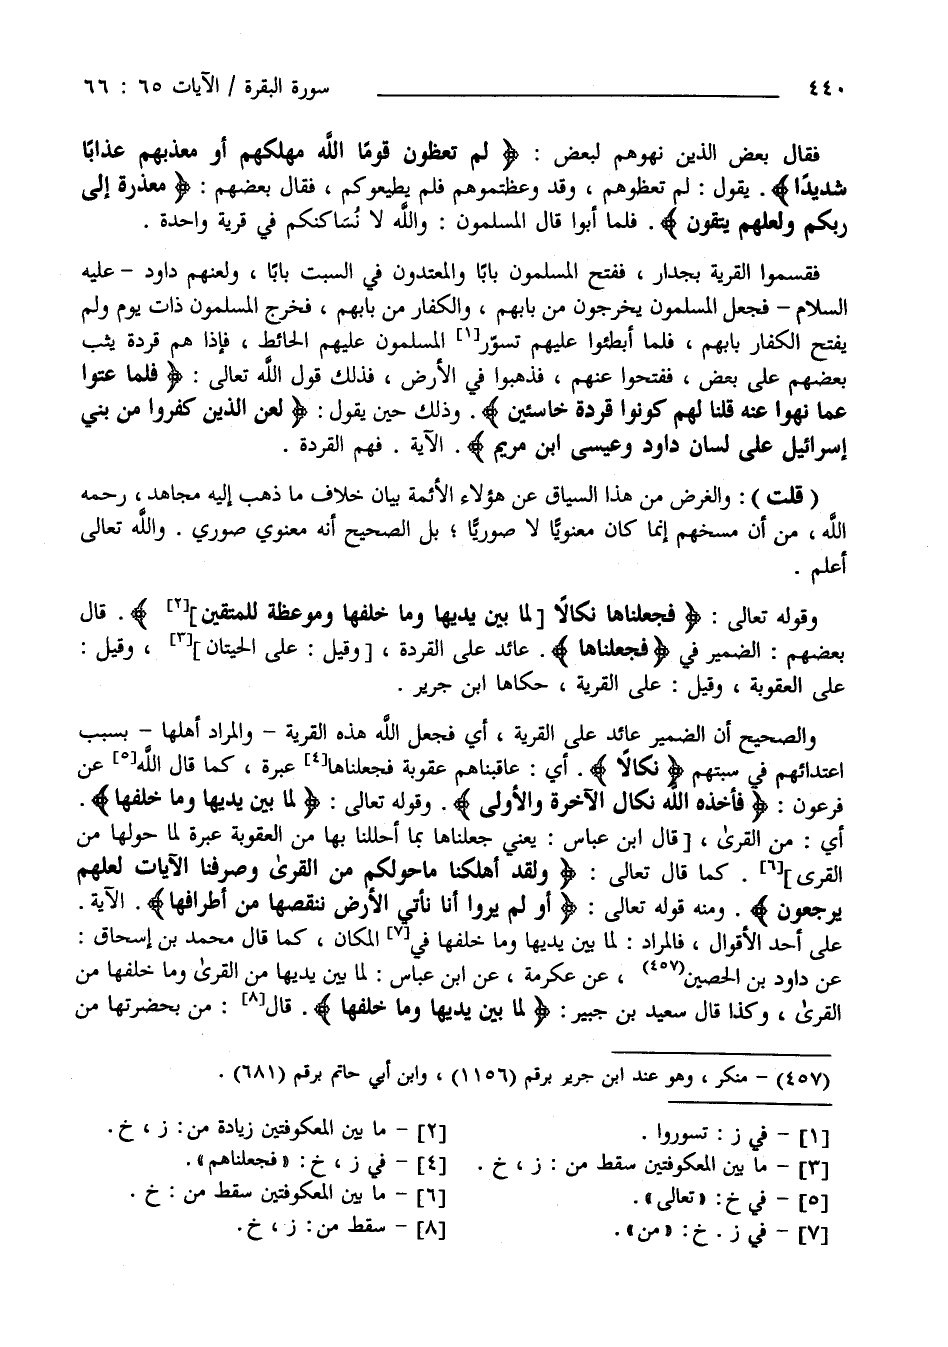 ٤٤٠ سورة البقرة / الآيات ٦٥ : ٦٦
فقال بعض الذين نهوهم لبعض : ﴿ لم تعظون قومًا اللَّه مهلكهم أو معذبهم عذابًا
شديدًا ﴾ . يقول : لم تعظوهم ، وقد وعظتموهم فلم يطيعوكم ، فقال بعضهم : ﴿ معذرة إلى
ربكم ولعلهم يتقون ﴾ . فلما أبوا قال المسلمون : واللَّه لا نُسَاكنكم في قرية واحدة .
فقسموا القرية بجدار ، ففتح المسلمون بابًا والمعتدون في السبت بابًا ، ولعنهم داود – عليه
السلام – فجعل المسلمون يخرجون من بابهم ، والكفار من بابهم ، فخرج المسلمون ذات يوم ولم
يفتح الكفار بابهم ، فلما أبطئوا عليهم تسوّر[١] المسلمون عليهم الحائط ، فإذا هم قردة يثب
بعضهم على بعض ، ففتحوا عنهم ، فذهبوا في الأرض ، فذلك قول اللَّه تعالى : ﴿ فلما عتوا
عما نهوا عنه قلنا لهم كونوا قردة خاسئين ﴾ . وذلك حين يقول : ﴿ لعن الذين كفروا من بني
إسرائيل على لسان داود وعيسى ابن مريم ﴾ . الآية . فهم القردة .
( قلت ) : والغرض من هذا السياق عن هؤلاء الأئمة بيان خلاف ما ذهب إليه مجاهد ، رحمه
اللَّه ، من أن مسخهم إنما كان معنويًّا لا صوريًّا ؛ بل الصحيح أنه معنوي صوري . واللَّه تعالى
أعلم .
وقوله تعالى : ﴿ فجعلناها نكالًا [ لما بين يديها وما خلفها وموعظة للمتقين ][٢] ﴾ . قال
بعضهم : الضمير في ﴿ فجعلناها ﴾ . عائد على القردة ، [ وقيل : على الحيتان ][٣] ، وقيل :
على العقوبة ، وقيل : على القرية ، حكاها ابن جرير .
والصحيح أن الضمير عائد على القرية ، أي فجعل اللَّه هذه القرية – والمراد أهلها – بسبب
اعتدائهم في سبتهم ﴿ نكالًا ﴾ . أي : عاقبناهم عقوبة فجعلناها[٤] عبرة ، كما قال اللَّه[٥] عن
فرعون : ﴿ فأخذه اللَّه نكال الآخرة والأولى ﴾ . وقوله تعالى : ﴿ لما بين يديها وما خلفها ﴾ .
أي : من القرىٰ ، [ قال ابن عباس : يعني جعلناها بما أحللنا بها من العقوبة عبرة لما حولها من
القرى ][٦] . كما قال تعالى : ﴿ ولقد أهلكنا ماحولكم من القرىٰ وصرفنا الآيات لعلهم
يرجعون ﴾ . ومنه قوله تعالى : ﴿ أو لم يروا أنا نأتي الأرض ننقصها من أطرافها ﴾ . الآية .
على أحد الأقوال ، فالمراد : لما بين يديها وما خلفها في[٧] المكان ، كما قال محمد بن إسحاق :
عن داود بن الحصين(٤٥٧) ، عن عكرمة ، عن ابن عباس : لما بين يديها من القرىٰ وما خلفها من
القرىٰ ، وكذا قال سعيد بن جبير : ﴿ لما بين يديها وما خلفها ﴾ . قال[٨] : من بحضرتها من
(٤٥٧) – منكر ، وهو عند ابن جرير برقم (١١٥٦) ، وابن أبي حاتم برقم (٦٨١) .
[١] – في ز : تسوروا . [٢] – ما بين المعكوفتين زيادة من : ز ، خ .
[٣] – ما بين المعكوفتين سقط من : ز ، خ . [٤] – في ز ، خ : «فجعلناهم» .
[٥] – في خ : «تعالى» . [٦] – ما بين المعكوفتين سقط من : خ .
[٧] – في ز . خ : «من» . [٨] – سقط من : ز ، خ .